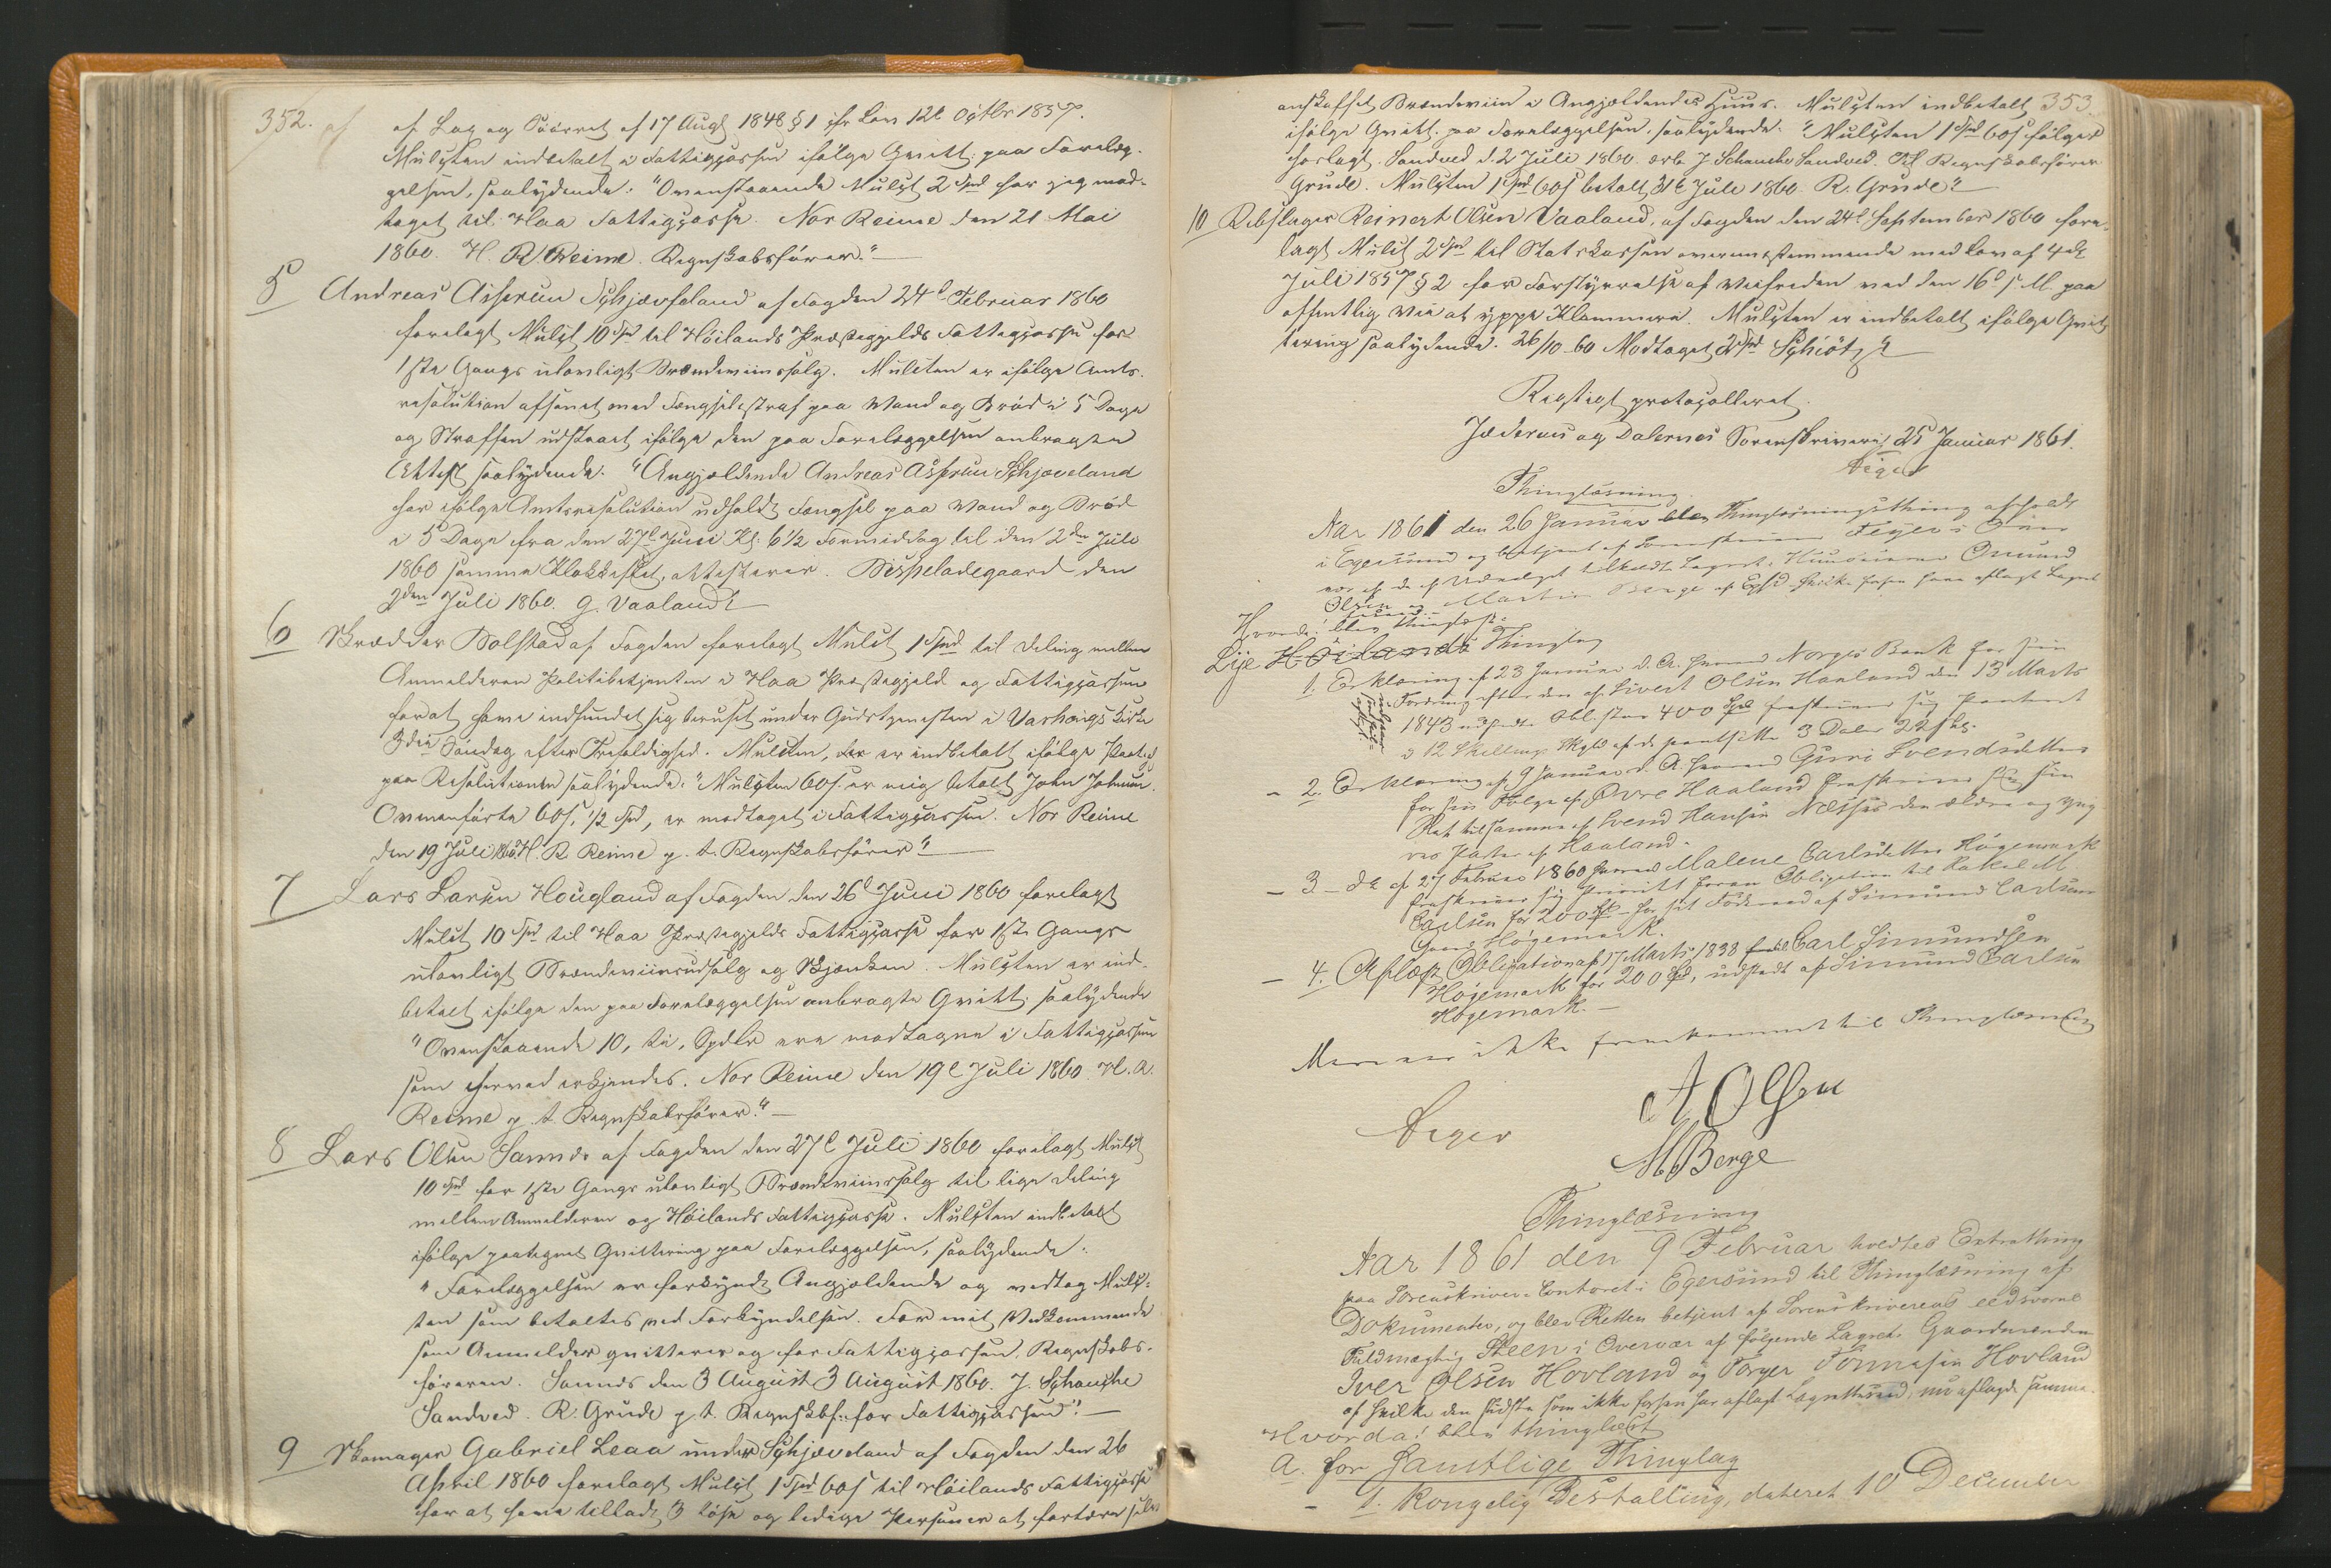 352.
af Lag og Saarret af 17 Augt 1848 § 1 jfr Lov 12t Ogtbr 1857.
Mulcten indbetalt i Fattigcassen ifølge Qvitt. paa Forelæg-
gelsen, saalydende: "Ovenstaaende Mulct 2 Spd har jeg mod-
taget til Haa Fattigcasse. Nor Reime den 21 Mai
1860. H. R. Reime. Regnskabsfører."
5 Andreas Asserson Schjæveland af Fogden 24d Februar 1860
forelagt Mulct 10 Spd til Höilands Præstegjelds Fattigcasse for
1ste Gangs ulovligt Brændeviinssalg. Mulcten er ifølge Amts-
resolution afsonet med Fængselsstraf paa Vand og Bröd i 5 Dage
og Straffen udstaaet ifølge den paa Forelæggelsen anbragte
Attest saalydende: "Angjældende Andreas Asserson Schjæveland
har ifølge Amtsresolution udholdt Fængsel paa Vand og Bröd
i 5 Dage fra den 27d Juni Kl. 6 1/2 Formiddag til den 2den Juli
1860 samme Klokkeslet, attesterer. Bispeladegaard den
2den Juli 1860. G. Vaaland"
6 Skrædder Bolstad af Fogden forelagt Mulct 1 Spd til Deling mellem
Anmelderen Politibetjenten i Haa Præstegjeld og Fattigcassen
for at have indfundet sig beruset under Gudstjenesten i Varhougs Kirke
3die Söndag efter Trefoldighed. Mulcten, er indbetalt ifølge Paateg
paa Resolutionen saalydende: "Mulcten 60 s. er mig betalt John Johnsen.
Ovenanførte 60 s, 1/2 Spd, er modtaget i Fattigcassen. Nor Reime
den 19 Juli 1860. H. R Reime p. t. Regnskabsfører"
7 Lars Larsen Hougland af Fogden den 26d Juni 1860 forelagt
Mulct 10 Spd til Haa Præstegjelds Fattigcasse for 1ste Gangs
ulovligt Brændeviinsudsalg og Skjænken. Mulcten er ind-
betalt ifølge den paa Forelæggelsen anbragte Qvitt. saalydende
"Ovenstaaende 10, ti, Spdlr ere modtagne i Fattigcassen
som herved erkjendes. Nor Reime den 19d Juli 1860. H. R.
Reime p t Regnskabsfører."
8 Lars Olsen Sannes af Fogden den 27d Juli 1860 forelagt Mulct
10 Spd for 1ste Gangs ulovligt Brændeviinssalg til lige Deling
mellem Anmelderen og Höilands Fattigcasse. Mulcten indbetalt
ifølge paategnet Qvittering paa Forelæggelsen, saalydende:
"Forelæggelsen er forkyndt Angjældende og vedtog Mulc-
ten som betaltes ved Forkyndelsen. For mit Vedkommende
som Anmelder qvitterer og for Fattigcassen, Regnskabs-
føreren. Sannes den 3 August 3 August 1860. J. Schanche
Sandved. R. Grude p. t. Regnskbf. for Fattigcassen".
9 Skomager Gabriel Leaa under Schjæveland af Fogden den 26
April 1860 forelagt Mulct 1 Spd 60 s til Höilands Fattigcasse
for at have tilladt 3 löse og ledige Personer at fortære selv
353.
anskaffet Brændeviin i Angjældendes Huus. Mulcten indbetalt
ifølge Qvitt. paa Forelæggelsen, saalydende: "Mulcten 1 Spd 60 s følger
forlagt. Sandved d. 2 Juli 1860 ærb. J Schanche Sandved. Til Regnskabsfører
Grude. Mulcten 1 Spd 60 s betalt 31d Juli 1860. R. Grude"
10 Rebslager Reinert Olsen Vaaland, af Fogden den 24d September 1860 fore-
lagt Mulct 2 Spd til Statskassen overensstemmende med Lov af 4de
Juli 1857 § 2 for Forstyrrelse af Veifreden ved den 16d s. M. paa
offentlig Vei at yppe Klammeri. Mulcten er indbetalt ifølge Qvit-
tering saalydende: 26/10-60 Modtaget 2 Spd Schiötz"
Rigtigt protocolleret.
Jæderens og Dalernes Sorenskriveri 25 Januar 1861.
Feyer
Thinglæsning.
Aar 1861 den 26 Januar blev Thinglæsningsthing afholdt
i Egersund og betjent af Sorenskriver Feyer i Over
vær af de af tilkaldte Lagret: Asmund
Olsen og Martin Berge af hvilke har aflagt Lagret
Hvorda! blev thinglæst:
Lye Höilands Thinglag
1. Erklæring af 23 Januar d. A. hvorved Norges Bank for sin
Fordring efter den af Sivert Olsen Haaland den 13 Marts
1843 udstedte Obl. stor 400 Spd fraskriver sig Panteret
i 12 Skillings Skyld af de pantsatte 3 Daler 22 sk.
- 2. Erklæring af 9 Januar d. A. hvorved Guri Svendsdatter
for sin Følge af Øvre Haaland fraskriver sig sin
Ret tilsammen af Svend Hansen den ældre og yng
res Parter af Haaland.
- 3 - do af 27 Februar 1860 hvorved Malene Carlsdatter Högemark
fraskriver sig Prioritet foran Obligation til Rakel M
Carlsen for 200 Spd for sit Föderaad af Simund Carlsens
Gaard Högemark.
- 4. Aflæst Obligation af 17 Marts 1838 til Carl Simundsen
Högemark for 200 Spd, udstedt af Simund Carlsen
Högemark. -
Mere var ikke fremkommet til Thinglæsning
Feyer
A Olsen
M Berge
Thinglæsning
Aar 1861 den 9 Februar holdtes Extrathing
paa Sorenskriver-Contoret i Egersund til Thinglæsning af
Dokumenter, og blev Retten betjent af Sorenskriverens eedsvorne
Fuldmægtig Steen i Overvær af følgende Lagret: Gaardmændene
Iver Olsen Hovland og Torger Tönnesen Hovland
af hvilke den sidste som ikke forhen har aflagt Lagretteseed, nu aflagde samme.
Hvorda! blev thinglæst
A. for Samtlige Thinglag
- 1. Kongelig Bestalling, dateret 10 December